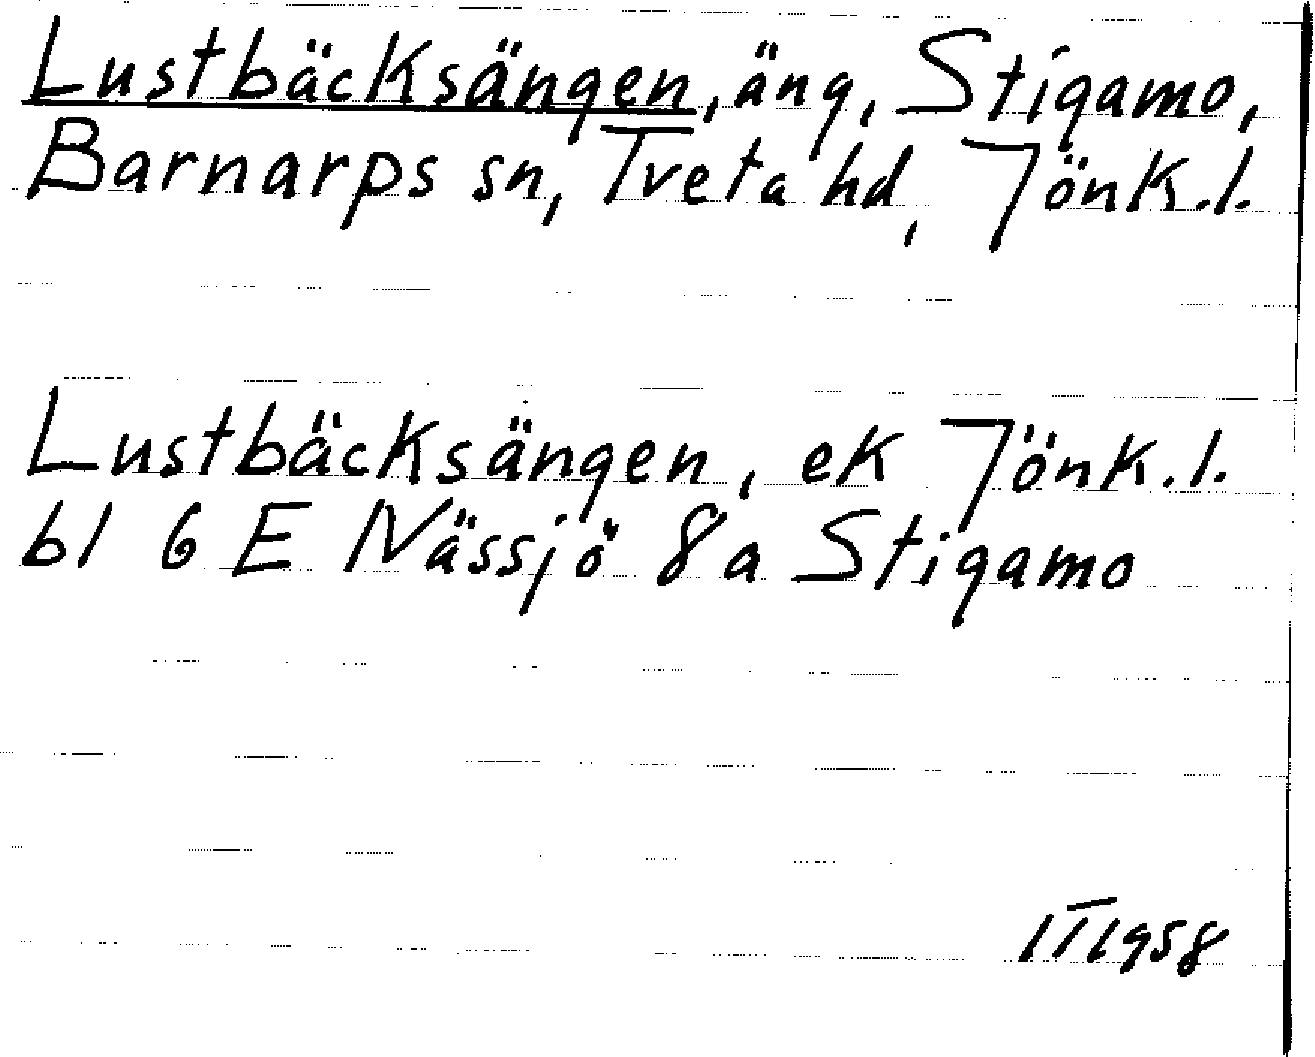 Lustbäcksängen, äng, Stigamo,
Barnarps sn, Tveta hd, Jönk.l.
Lustbäcksängen, ek Jönk.l.
bl 6 E Nässjö 8a Stigamo
IT1958